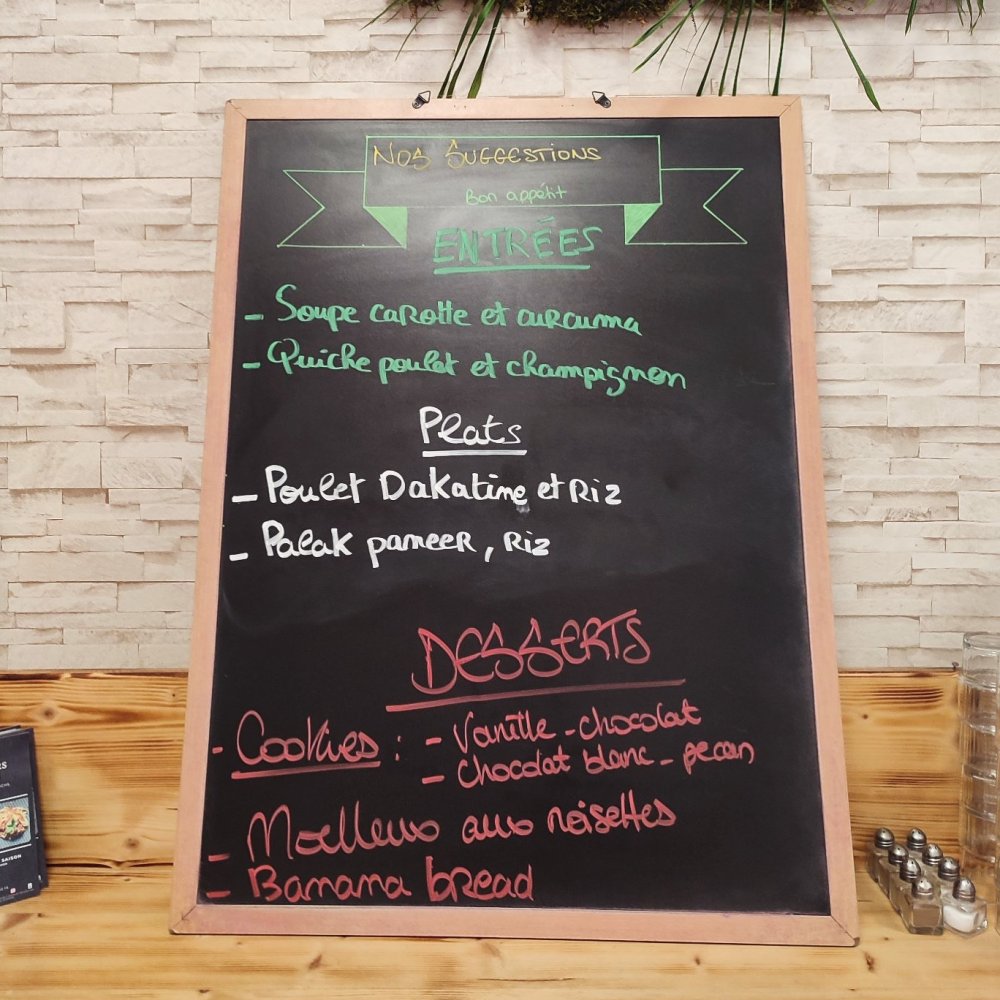 NOS SUGGESTIONS
Bon appétit
ENTRÉES
- Soupe carotte et curcuma
- Quiche poulet et champignon
Plats
- Poulet Dakatine et Riz
- Palak paneer, Riz
DESSERTS
- Cookies : - Vanille - chocolat
- chocolat blanc - pecan
- Moelleux aux noisettes
- Banana bread
SAISON